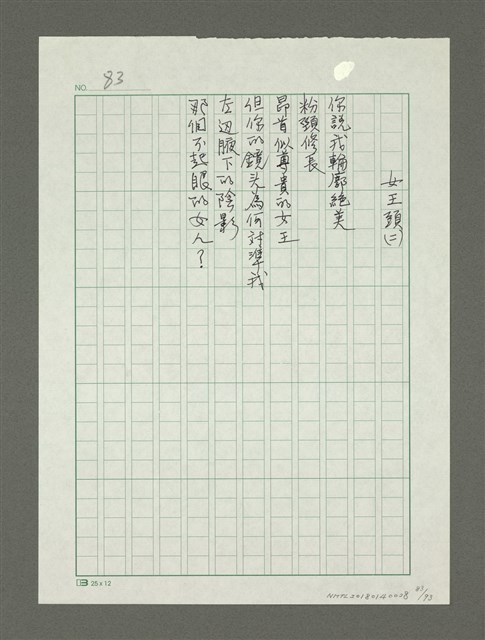 NO. 83
女王頭(二)
你說我輪廓絕美
粉頸修長
昂首似尊貴的女王
但你的鏡头為何対準我
左边腋下的陰影
那個不起眼的女人？
25 x 12
NMTL20180140008 83/93